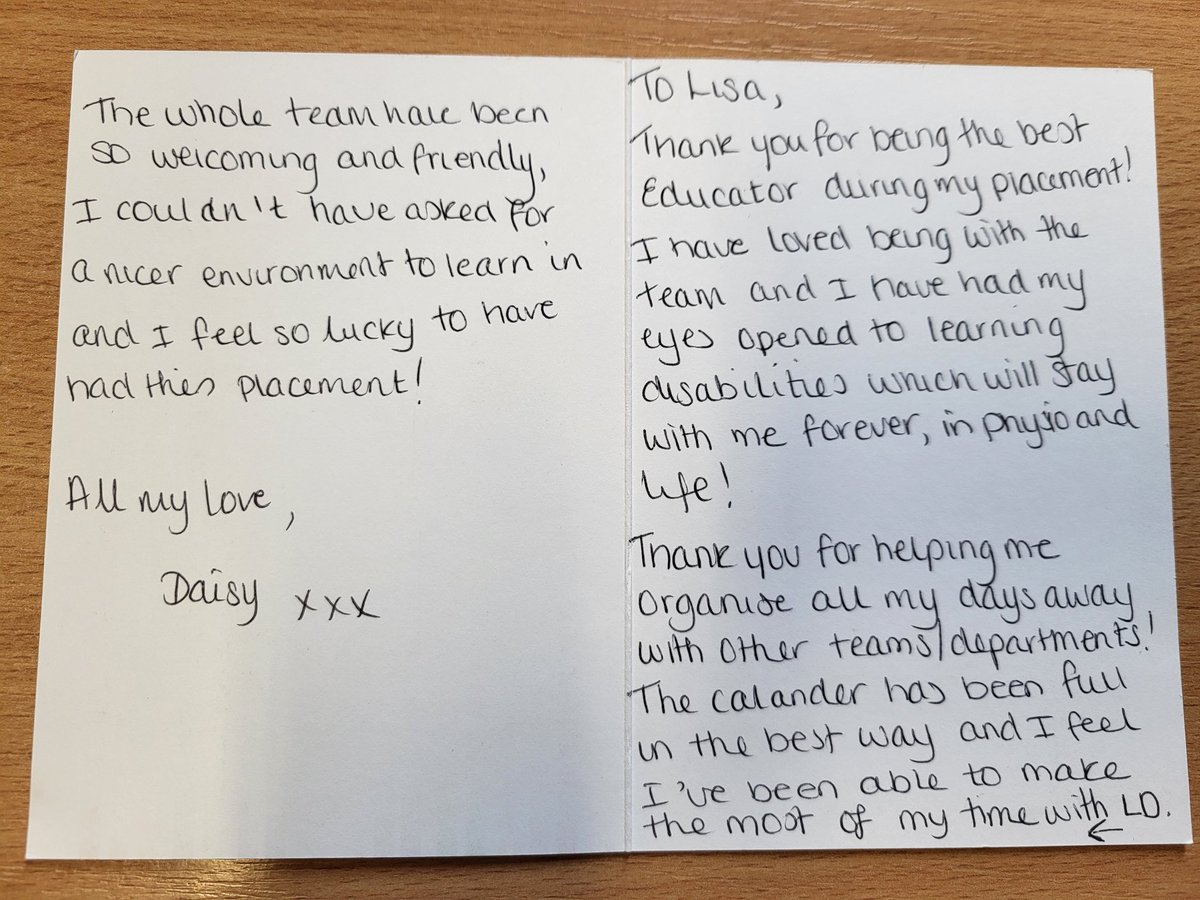 To Lisa,
Thank you for being the best
Educator during my placement!
I have loved being with the
team and I have had my
eyes opened to learning
disabilities which will stay
with me forever, in physio and
life!
Thank you for helping me
organise all my days away
with other teams/departments!
The calander has been full
in the best way and I feel
I've been able to make
the most of my time with LD.
←
The whole team have been
so welcoming and friendly,
I couldn't have asked for
a nicer environment to learn in
and I feel so lucky to have
had this placement!
All my love,
Daisy xxx